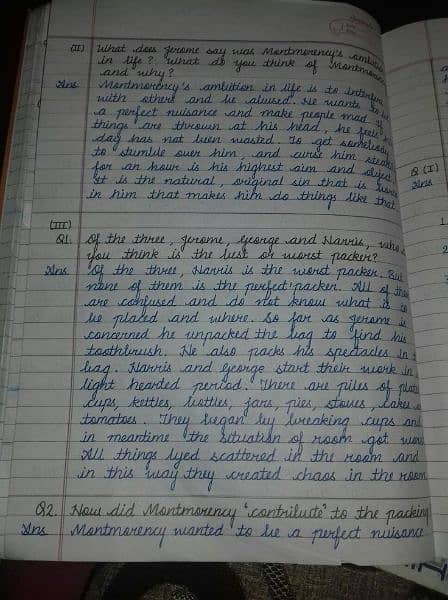 (II) What does Jerome say was Montmorency's ambition
in life? What do you think of Montmorency
and why?
Ans Montmorency's ambition in life is to interfere
with others and be abused. He wants to be
a perfect nuisance and make people mad if
things are thrown at his head, he feels
day has not been wasted. To get somebody
to stumble over him, and curse him steadily
for an hour is his highest aim and object
It is the natural, original sin that is
in him that makes him do things like that
(III)
Q1. Of the three, Jerome, George and Harris, who
you think is the best or worst packer?
Ans Of the three, Harris is the worst packer. But
none of them is the perfect packer. All of
are confused and do not know what is to
be placed and where. So far as Jerome is
concerned he unpacked the bag to find his
toothbrush. He also packs his spectacles in
bag. Harris and George start their work in
light hearted period. There are piles of plates
cups, kettles, bottles, jars, pies, stoves, cakes
tomatoes. They began by breaking cups and
in meantime the situation of room got worse
All things lyed scattered in the room and
in this way they created chaos in the room
Q2. How did Montmorency "contribute" to the packing
Ans Montmorency wanted to be a perfect nuisance
Q (I)
Ans
1.
2.